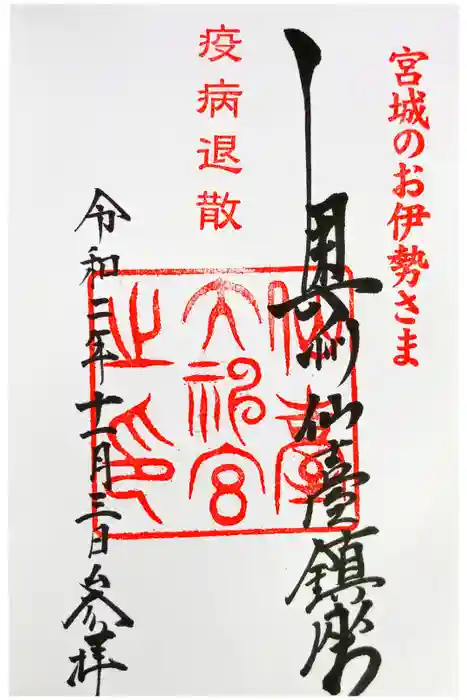 宮城のお伊勢さま
奥州仙臺鎮座
疫病退散
仙臺
大神宮
之印
令和二年十一月三日参拝